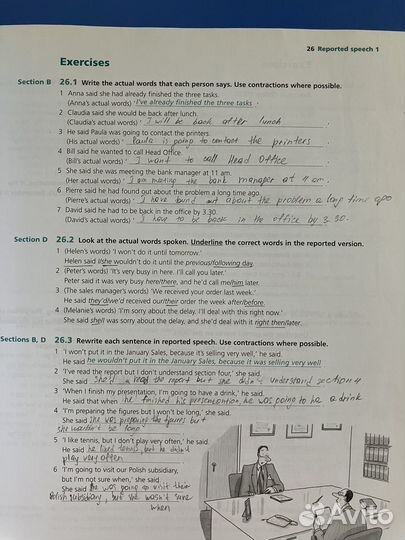 26 Reported speech 1
Exercises
Section B 26.1 Write the actual words that each person says. Use contractions where possible.
1 Anna said she had already finished the three tasks.
(Anna's actual words) 'I've already finished the three tasks.'
2 Claudia said she would be back after lunch.
(Claudia's actual words) 'I will be back after lunch.
3 He said Paula was going to contact the printers.
(His actual words) 'Paula is going to contact the printers.
4 Bill said he wanted to call Head Office.
(Bill's actual words) 'I want to call Head Office
5 She said she was meeting the bank manager at 11 am.
(Her actual words) 'I am meeting the bank manager at 11 am.
6 Pierre said he had found out about the problem a long time ago.
(Pierre's actual words) 'I have found out about the problem a long time ago
7 David said he had to be back in the office by 3.30.
(David's actual words) 'I have to be back in the office by 3.30.
Section D 26.2 Look at the actual words spoken. Underline the correct words in the reported version.
1 (Helen's words) 'I won't do it until tomorrow.'
Helen said I/she wouldn't do it until the previous/following day.
2 (Peter's words) 'It's very busy in here. I'll call you later.'
Peter said it was very busy here/there, and he'd call me/him later.
3 (The sales manager's words) 'We received your order last week.'
He said they'd/we'd received our/their order the week after/before.
4 (Melanie's words) 'I'm sorry about the delay. I'll deal with this right now.'
She said she/I was sorry about the delay, and she'd deal with it right then/later.
Sections B, D 26.3 Rewrite each sentence in reported speech. Use contractions where possible.
1 'I won't put it in the January Sales, because it's selling very well,' he said.
He said he wouldn't put it in the January Sales, because it was selling very well
2 'I've read the report but I don't understand section four,' she said.
She said she'd read the report but she didn't understand section 4
3 'When I finish my presentation, I'm going to have a drink,' he said.
He said that when he finished his presentation, he was going to have a drink
4 'I'm preparing the figures but I won't be long,' she said.
She said she was preparing the figures but
she wouldn't be long
5 'I like tennis, but I don't play very often,' he said.
He said he liked tennis, but he didn't
play very often
6 'I'm going to visit our Polish subsidiary,
but I'm not sure when,' she said.
She said she was going to visit their
Polish subsidiary, but she wasn't sure
when
Avito